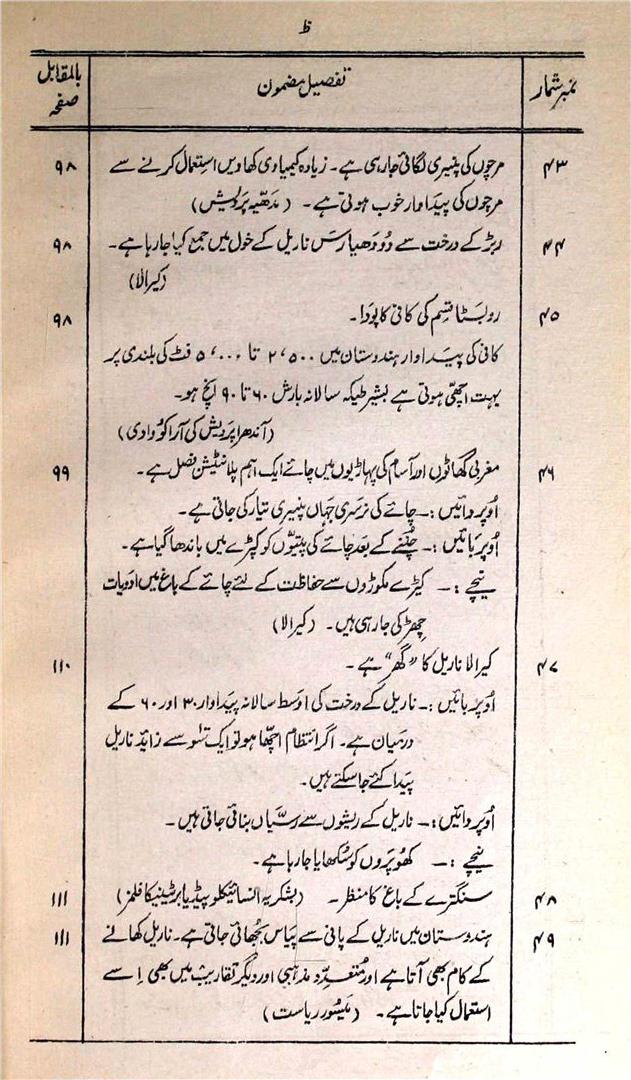 ظ
نمبر شمار تفصیل مضمون بالمقابل صفحہ
۴۳ مرچوں کی پنیری لگائی جا رہی ہے۔ زیادہ کیمیاوی کھادیں استعمال کرنے سے ۹۸
مرچوں کی پیداوار خوب ہوتی ہے۔ (مدھیہ پردیش)
۴۴ ربڑ کے درخت سے دودھیا رس ناریل کے خول میں جمع کیا جا رہا ہے۔ ۹۸
(کیرالا)
۴۵ روبسٹا قسم کی کافی کا پودا۔ ۹۸
کافی کی پیداوار ہندوستان میں ۲،۵۰۰ تا ۵،۰۰۰ فٹ کی بلندی پر
بہت اچھی ہوتی ہے بشرطیکہ سالانہ بارش ۶۰ تا ۹۰ اِنچ ہو۔
(آندھرا پردیش کی آراکو وادی)
۴۶ مغربی گھاٹوں اور آسام کی پہاڑیوں میں چائے ایک اہم پلانٹیشن فصل ہے۔ ۹۹
اُوپر دائیں :۔ چائے کی نرسری جہاں پنیری تیار کی جاتی ہے۔
اُوپر بائیں :۔ چُننے کے بعد چائے کی پتیوں کو کپڑے میں باندھا گیا ہے۔
نیچے :۔ کیڑے مکوڑوں سے حفاظت کے لئے چائے کے باغ میں ادویات
چھڑکی جا رہی ہیں۔ (کیرالا)
۴۷ کیرالا ناریل کا "گھر" ہے۔ ۱۱۰
اُوپر بائیں :۔ ناریل کے درخت کی اوسط سالانہ پیداوار ۳۰ اور ۶۰ کے
درمیان ہے۔ اگر انتظام اچھا ہو تو ایک سو سے زائد ناریل
پیدا کئے جا سکتے ہیں۔
اُوپر دائیں :۔ ناریل کے ریشوں سے رسّیاں بنائی جاتی ہیں۔
نیچے :۔ کھوپروں کو سُکھایا جا رہا ہے۔
۴۸ سنگترے کے باغ کا منظر۔ (بشکریہ انسائیکلوپیڈیا برٹینیکا فلمز) ۱۱۱
۴۹ ہندوستان میں ناریل کے پانی سے پیاس بُجھائی جاتی ہے۔ ناریل کھانے ۱۱۱
کے کام بھی آتا ہے اور متعدّد مذہبی اور دیگر تقاریب میں بھی اِسے
استعمال کیا جاتا ہے۔ (میسور ریاست)